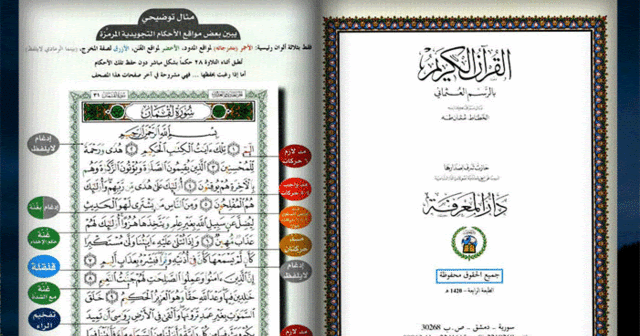 مثال توضيحي
يبين بعض مواقع الأحكام التجويدية المرمّزة
فقط بثلاثة ألوان رئيسية: الأحمر (بدرجاته) لمواقع المدود، الأخضر لمواقع الغنن، الأزرق لصفة المخرج،
نطبق أثناء التلاوة ٢٨ حكماً بشكل مباشر دون حفظ تلك الأحكام
أما إذا رغبت بحفظها .. فهي مشروحة في آخر صفحات هذا المصحف
سورة لقمان
بسم الله الرحمن الرحيم
الم تلك ءايت الكتب الحكيم هدى ورحمة
للمحسنين الذين يقيمون الصلوة ويؤتون الزكوة وهم
بالآخرة هم يوقنون أولئك على هدى من ربهم وأولئك
هم المفلحون ومن الناس من يشترى لهو الحديث
ليضل عن سبيل الله بغير علم ويتخذها هزوا أولئك لهم
عذاب مهين وإذا تتلى عليه ءايتنا ولى مستكبرا
كأن لم يسمعها كأن فى أذنيه وقرا فبشره بعذاب أليم
إن الذين ءامنوا وعملوا الصلحت لهم جنت النعيم
خلدين فيها وعد الله حقا وهو العزيز الحكيم خلق
السموت بغير عمد ترونها وألقى فى الأرض روسى أن تميد
إدغام
لايلفظ
إدغام بغنة
غنة
قلقلة
غنة
مع الشدة
تفخيم
الراء
مد لازم
٦ حركات
مد واجب
مد
حركتان
إدغام
لايلفظ
مد لازم
القرآن الكريم
بالرسم العثماني
الخطاط عثمان طه
دار المعرفة
جميع الحقوق محفوظة
الطبعة الرابعة - 1420 هـ
سورية - دمشق - ص.ب 30268